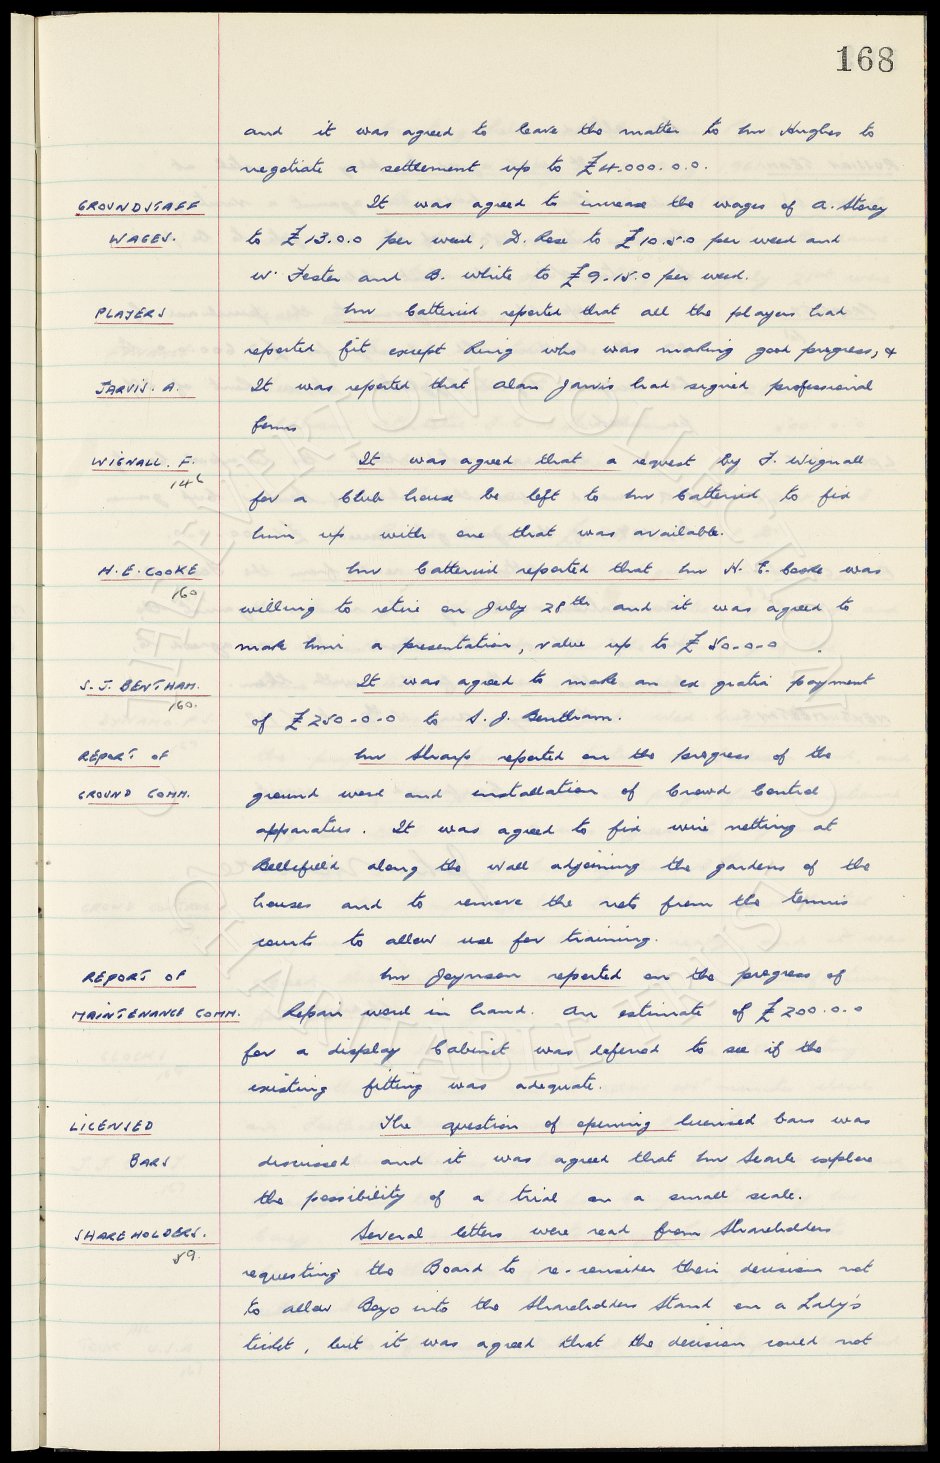 168
and it was agreed to leave the matter to Mr Hughes to
negotiate a settlement up to £4.000.0.0.
GROUNDSTAFF It was agreed to increase the wages of A. Storey
WAGES. to £13.0.0 per week, D. Rose to £10.5.0 per week and
W. Foster and B. White to £9.15.0 per week.
PLAYERS Mr Catterick reported that all the players had
reported fit except King who was making good progress, &
JARVIS. A. It was reported that Alan Jarvis had signed professional
forms
WIGNALL. F. It was agreed that a request by F. Wignall
146 for a Club house be left to Mr Catterick to fix
him up with one that was available.
H.E. COOKE Mr Catterick reported that Mr H. E. Cooke was
160 willing to retire on July 28th and it was agreed to
make him a presentation, value up to £50-0-0.
S.J. BENTHAM. It was agreed to make an ex gratia payment
160. of £250-0-0 to S. J. Bentham.
REPORT OF Mr Sharp reported on the progress of the
GROUND COMM. ground work and installation of Crowd Control
apparatus. It was agreed to fix wire netting at
Bellefield along the wall adjoining the gardens of the
houses and to remove the nets from the tennis
courts to allow use for training.
REPORT OF Mr Joynson reported on the progress of
MAINTENANCE COMM. Repair work in hand. An estimate of £200.0.0
for a display Cabinet was deferred to see if the
existing fitting was adequate.
LICENSED The question of opening licensed bars was
BARS discussed and it was agreed that Mr Searle explore
the possibility of a trial on a small scale.
SHAREHOLDERS. Several letters were read from Shareholders
59. requesting the Board to re-consider their decision not
to allow Boys into the Shareholders Stand on a Lady's
ticket, but it was agreed that the decision could not